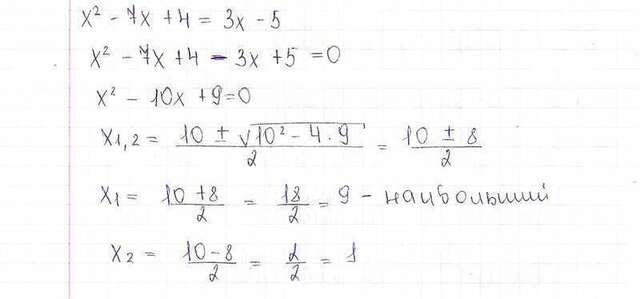 x² - 7x + 4 = 3x - 5
x² - 7x + 4 - 3x + 5 = 0
x² - 10x + 9 = 0
x1,2 = (10 ± √(10² - 4·9))/2 = (10 ± 8)/2
x1 = (10 + 8)/2 = 18/2 = 9 - наибольший
x2 = (10 - 8)/2 = 2/2 = 1